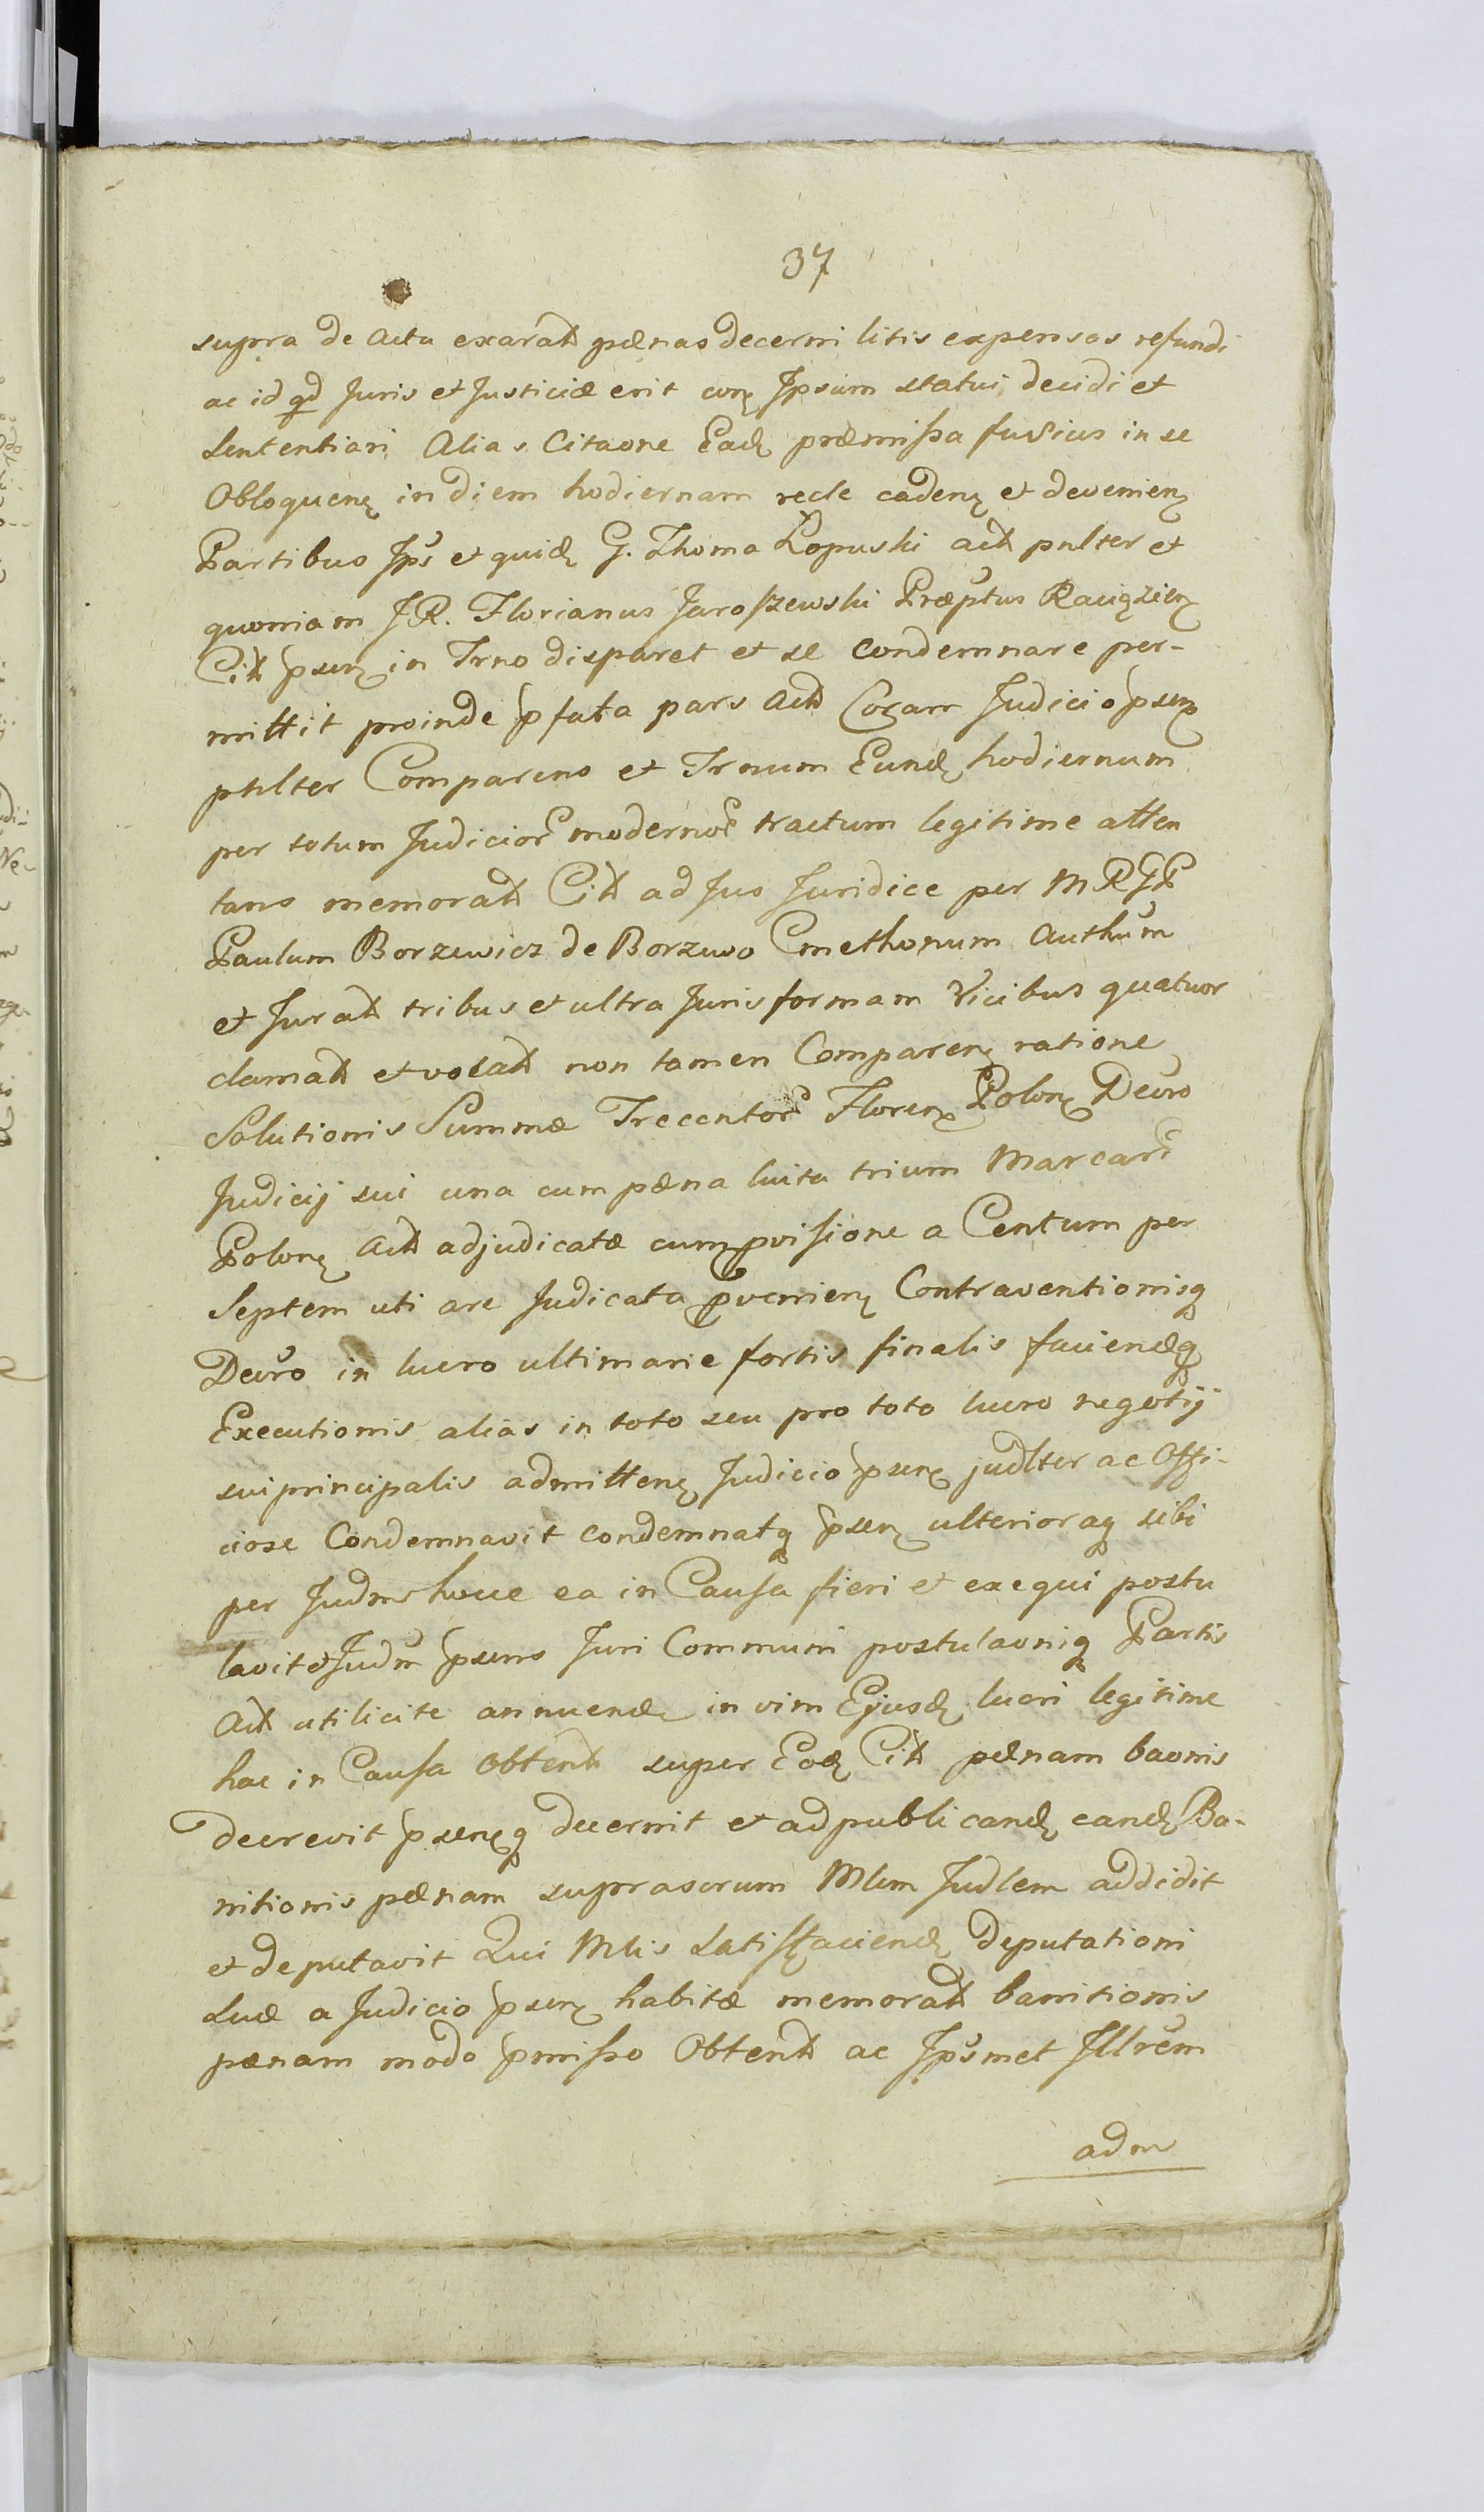 37
supra de Actu exarat pænas decerni litis expensas refundi
ac id qd Juris et Justiciæ erit con Ipsum statui, decidi et
sententiari Alias Citaone Ead præmissa fusius in se
Obloquen in diem hodiernam recte caden et devenien
Partibus Ips et quid G. Thoma Łopuski act pnlter et
quoniam J R. Florianus Jaroszewski Præptus Raciązien
Cit psen in Trno disparet et se condemnare per-
mittit proinde pfata pars Act Coram Judicio psen
pnlter Comparens et Trnum Eund hodiernum
per totum Judicior modernor tractum legitime atten
tans memorat Cit ad Jus Juridice per M R G P
Paulum Borzewicz de Borzewo Cmethonum Authum
et Jurat tribus et ultra Juris formam Vicibus quatuor
clamat et vocat non tamen Comparen ratione
Solutionis Summæ Trecentor Floren Polon Decro
Judicij sui una cum pæna luita trium Marcar
Polon Act adjudicatæ cum pvisione a Centum per
Septem uti are Judicata pvenien Contraventionisq
Decro in lucro ultimarie fortis finalis faciendæq
Executionis alias in toto seu pro toto lucro negotij
sui principalis admitten Judicio psen judlter ac Offi-
ciose Condemnavit condemnatq psen ulterioraq sibi
per Judm hocce ea in Causa fieri et exequi postu
lavit et Judm psens Juri Communi postulaoniq Partis
Act uti licite annuend in vim Ejusd lucri legitime
hac in Causa Obtent super Eod Cit pænam baonis
decrevit psenq decernit et ad publicand eand Ba-
nitionis pænam suprascrum Mlem Judlem addidit
et deputavit Qui Mlis Satisfaciend deputationi
suæ a Judicio psen habitæ memorat banitionis
pænam modo pmisso Obtent ac Ipsmet Illrem
adm